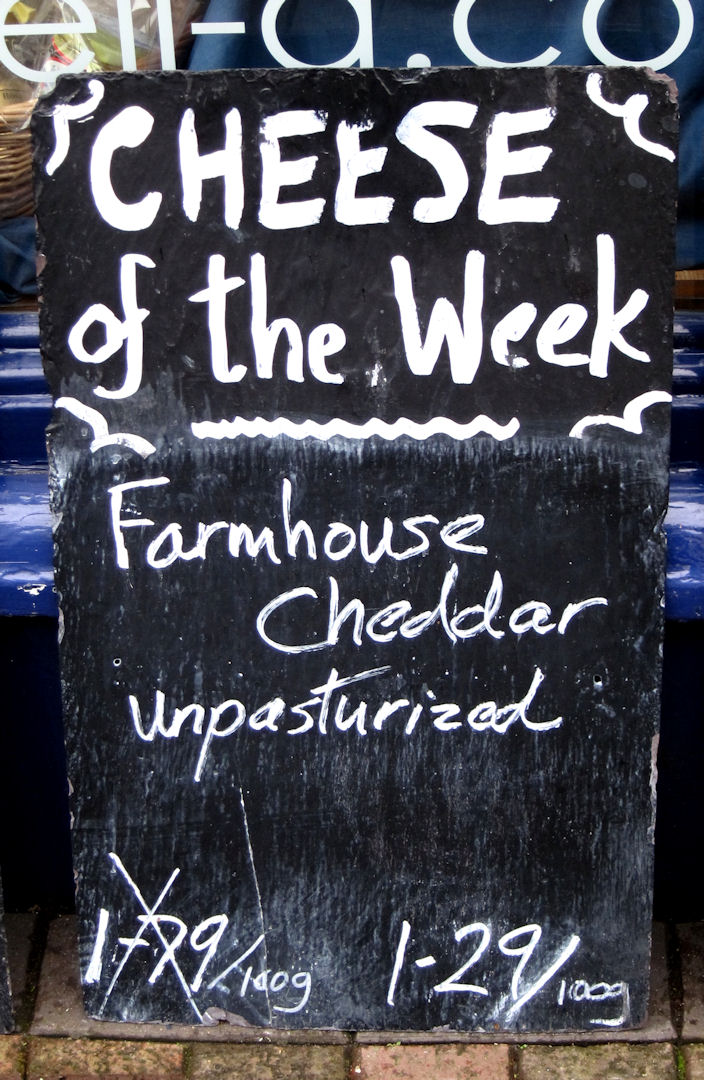 eli-a.co
CHEESE
of the Week
Farmhouse
Cheddar
unpasturized
1-79/100g 1-29/100g